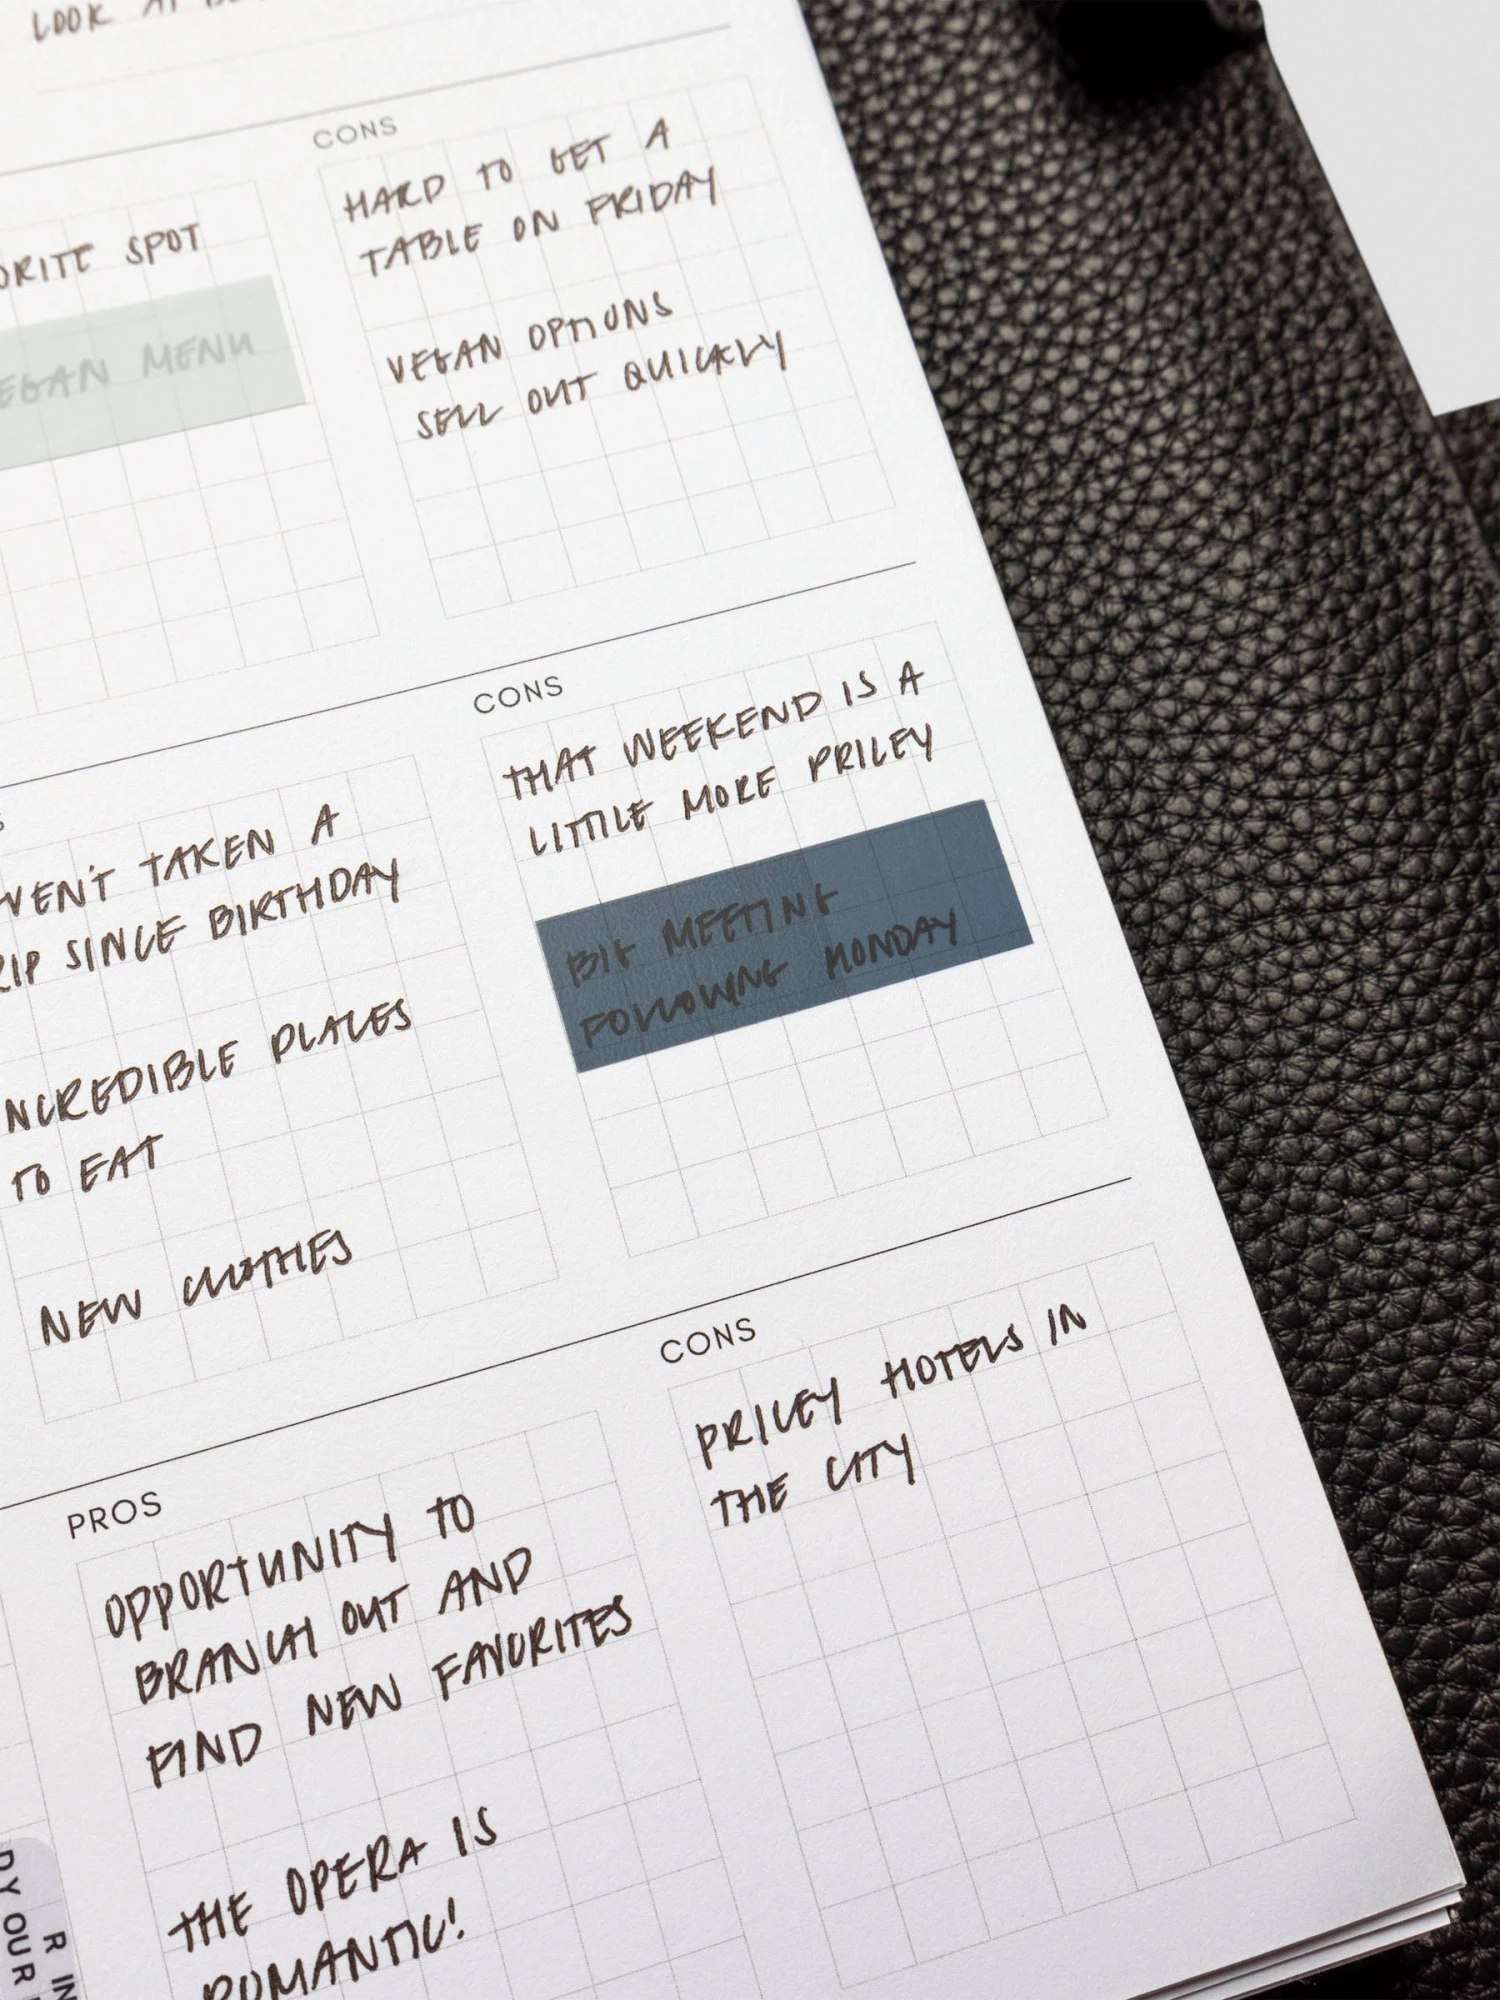 LOOK AT
CONS
HARD TO GET A
TABLE ON FRIDAY
VEGAN OPTIONS
SELL OUT QUICKLY
ORITE SPOT
EGAN MENU
CONS
THAT WEEKEND IS A
LITTLE MORE PRICEY
BIG MEETING
FOLLOWING MONDAY
S
VEN'T TAKEN A
RIP SINCE BIRTHDAY
NCREDIBLE PLACES
TO EAT
NEW CLOTHES
PROS
OPPORTUNITY TO
BRANCH OUT AND
FIND NEW FAVORITES
THE OPERA IS
ROMANTIC!
CONS
PRICEY HOTELS IN
THE CITY
R IN
DY OUR